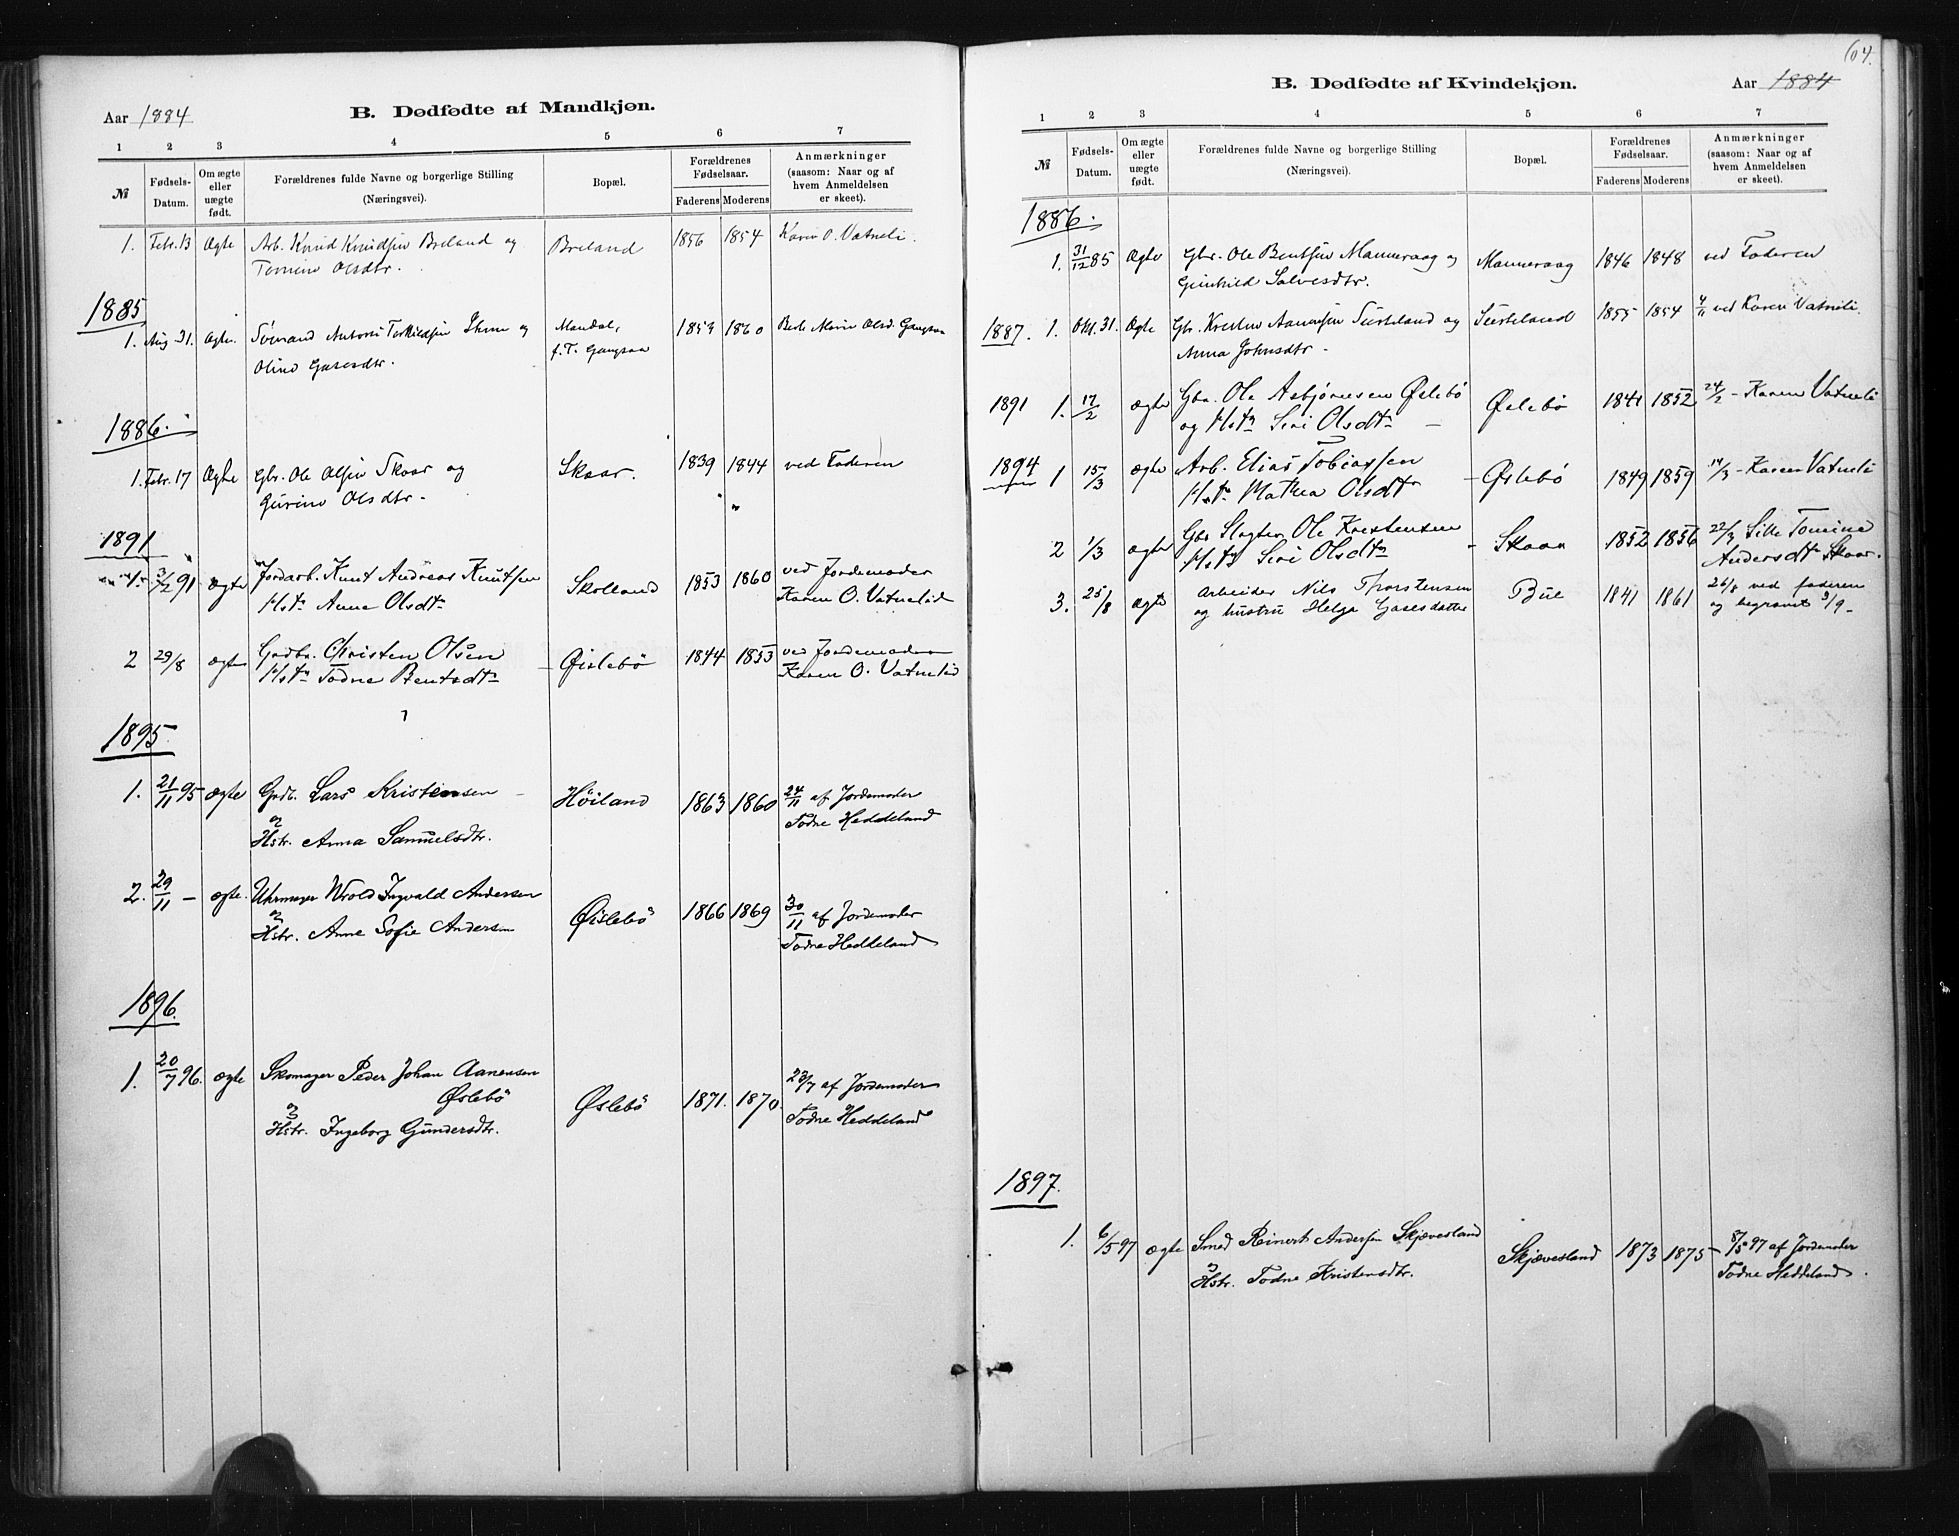 Aar 1884
B. Dødfødte af Mandkjøn.
1 2 3 4 5 6 7
№
Fødsels-Datum.
Om ægte eller uægte født.
Forældrenes fulde Navne og borgerlige Stilling
(Næringsvei).
Bopæl.
Forældrenes Fødselsaar.
Faderens Moderens
Anmærkninger
(saasom: Naar og af
hvem Anmeldelsen
er skeet).
1. Febr. 13 Ægte Arb. Knud Knudsen Breland og Breland 1856 1854 Karen O. Vatneli.
Tomine Olsdtr.
1885
1. Aug 31. Ægte. Sømand Antoni Terkildsen og Mandal, 1860
Oline Gasesdtr. f. T. Gangsaa
1886.
1. Febr. 17 Ægte Gbr. Ole Olsen Skaar og Skaar. 1839 1844 ved Faderen
Gurine Olsdtr.
1891
91 ægte Jordarb. Knut Andreas Knutsen Skolland 1853 1860 ved Jordemoder
Hst. Anne Olsdtr Karen O. Vatnelid
2 29/8 ægte Grdbr. Christen Olsen Øislebö 1844 1853 ved Jordemoder
Hst. Todne Bentsdtr Karen O. Vatnelid
1895.
1. 21/11 95 ægte Grdb. Lars Kristensen Høiland 1863 1860 24/11 af Jordemoder
og Todne Heddeland
Hstr. Anna Samuelsdtr.
2. 29/11 – ægte. Uhrmager Wrold Ingvald Andersen Øislebö 1866 1869 30/11 af Jordemoder
og
Hstr. Anne Sofie Andersen Todne Heddeland
1896.
1. 20/7 96. ægte Skomager Peder Johan Aanensen Øslebö 1871. 1870. 23/7 af Jordemoder
Øslebö
og Todne Heddeland
Hstr. Ingeborg Gundersdtr.
604.
B. Dødfødte af Kvindekjøn.
Aar 1884
1 2 3 4 5 6 7
№
Fødsels-Datum.
Om ægte eller uægte født.
Forældrenes fulde Navne og borgerlige Stilling
(Næringsvei).
Bopæl.
Forældrenes Fødselsaar.
Faderens Moderens
Anmærkninger
(saasom: Naar og af
hvem Anmeldelsen
er skeet).
1886.
1. 31/12 85 Ægte Gbr. Ole Bentsen Manneraag og Manneraag 1846 1848 ved Faderen
Gunhild Salvesdtr.
1887. 1. Okt. 31. Ægte Gbr. Kristen Aanensen og 1855 1854 4/11 ved Karen Vatneli.
Anna Johnsdtr.
1891 1. 17/2 ægte Gbr. Ole Asbjørnsen Øslebö Øslebö 1841 1852 24/2 – Karen Vatneli
og Hst. Siri Olsdtr
1894 1 15/3 ægte Arb. Elias Tobiassen Øslebö 1849 1859 14/3 – Karen Vatneli
Hst. Mathea Olsdtr
2 1/3 ægte Gbr Slagter Ole Kristensen Skaar 1852 1856 22/3 Sille Tomine
Hst. Siri Olsdtr Andersdtr Skaar.
3. 25/8 ægte Arbeider Nils Thorstensen Bue 1841 1861 26/8 ved faderen
og hustru Helga Gasesdatter og begravet 3/9 –
1897.
1. 6/5 97 ægte Smed Reinert Andersen Skjævesland Skjævesland 1873 1875 – 8/5 97 af Jordemoder
og
Hstr. Todne Kristensdtr. Todne Heddeland.